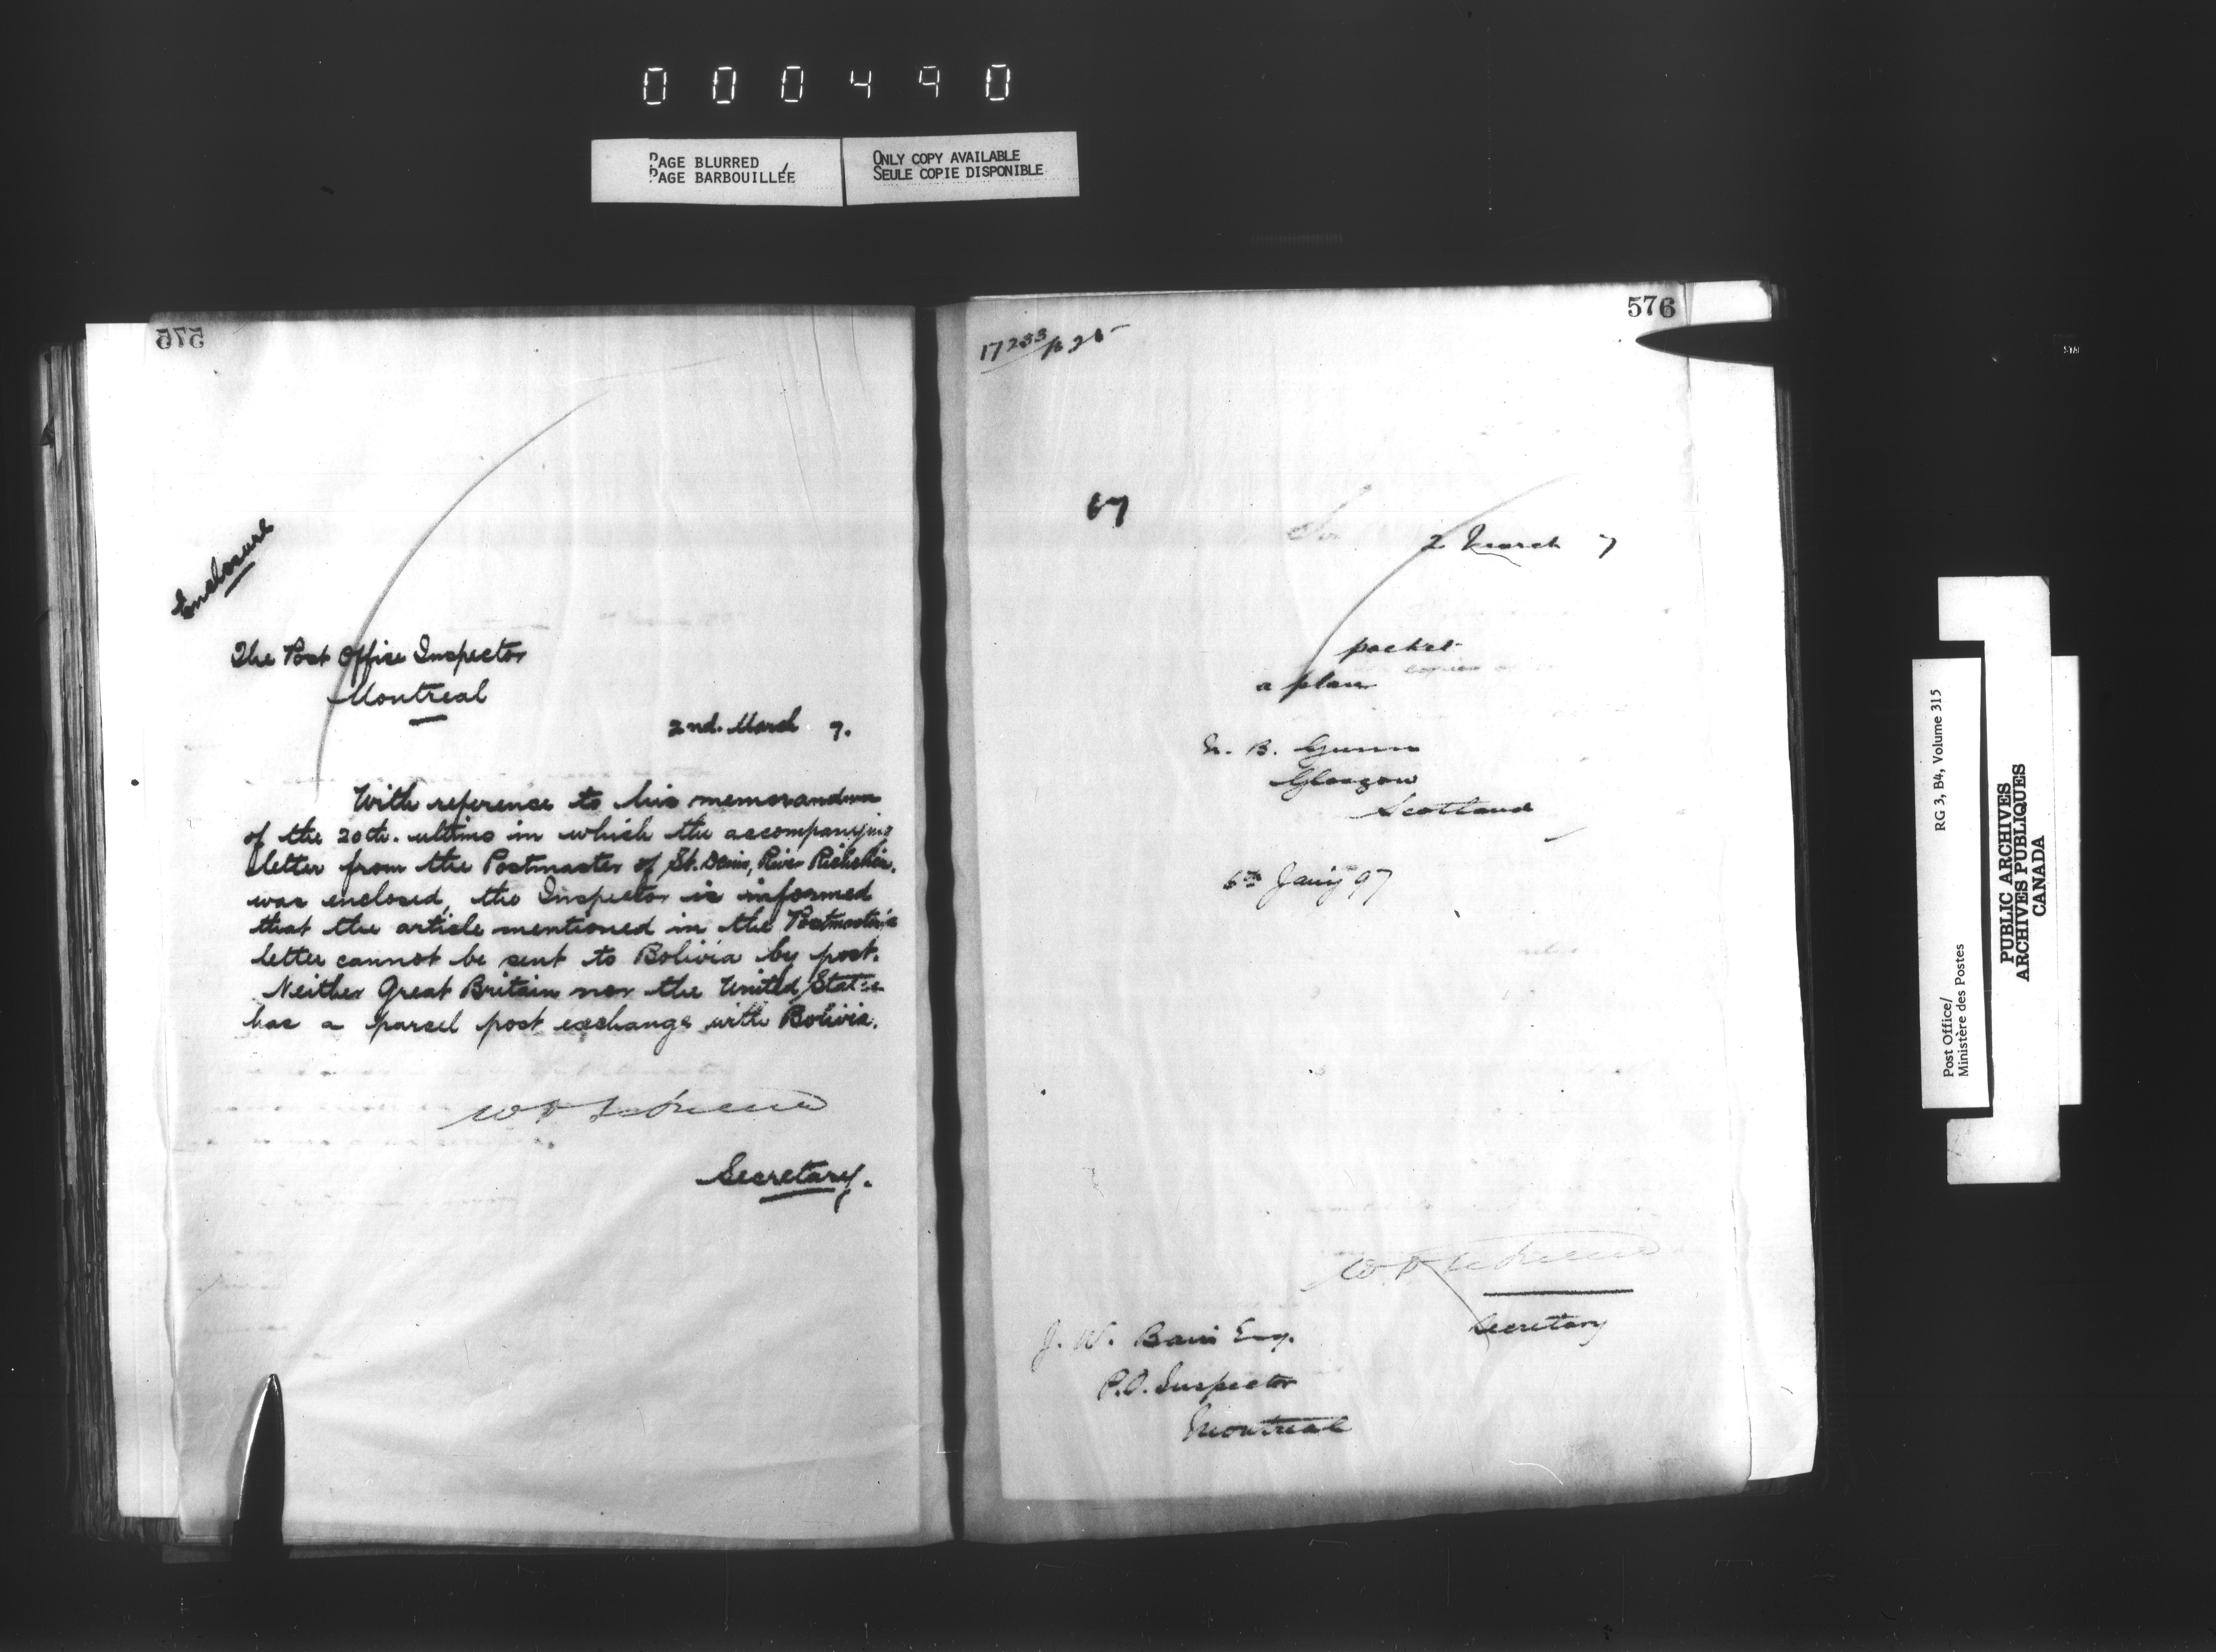 000490
PAGE BLURRED
PAGE BARBOUILLÉE
ONLY COPY AVAILABLE
SEULE COPIE DISPONIBLE
575
Enclosure
The Post Office Inspector
Montreal
2nd. March 7.
With reference to his memorandum
of the 20th. ultimo in which the accompanying
letter from the Postmaster of St. Denis, River Richelieu,
was enclosed, the Inspector is informed
that the article mentioned in the Postmaster's
letter cannot be sent to Bolivia by post.
Neither Great Britain nor the United States
has a parcel post exchange with Bolivia.
Secretary.
576
17233
67
2 March 7
packet
a plan
B. Gunn
Glasgow
Scotland
6th Jany 97
Secretary
J. W. Bain Esq.
P.O. Inspector
Montreal
Post Office/
Ministère des Postes
RG 3, B4, Volume 315
PUBLIC ARCHIVES
ARCHIVES PUBLIQUES
CANADA